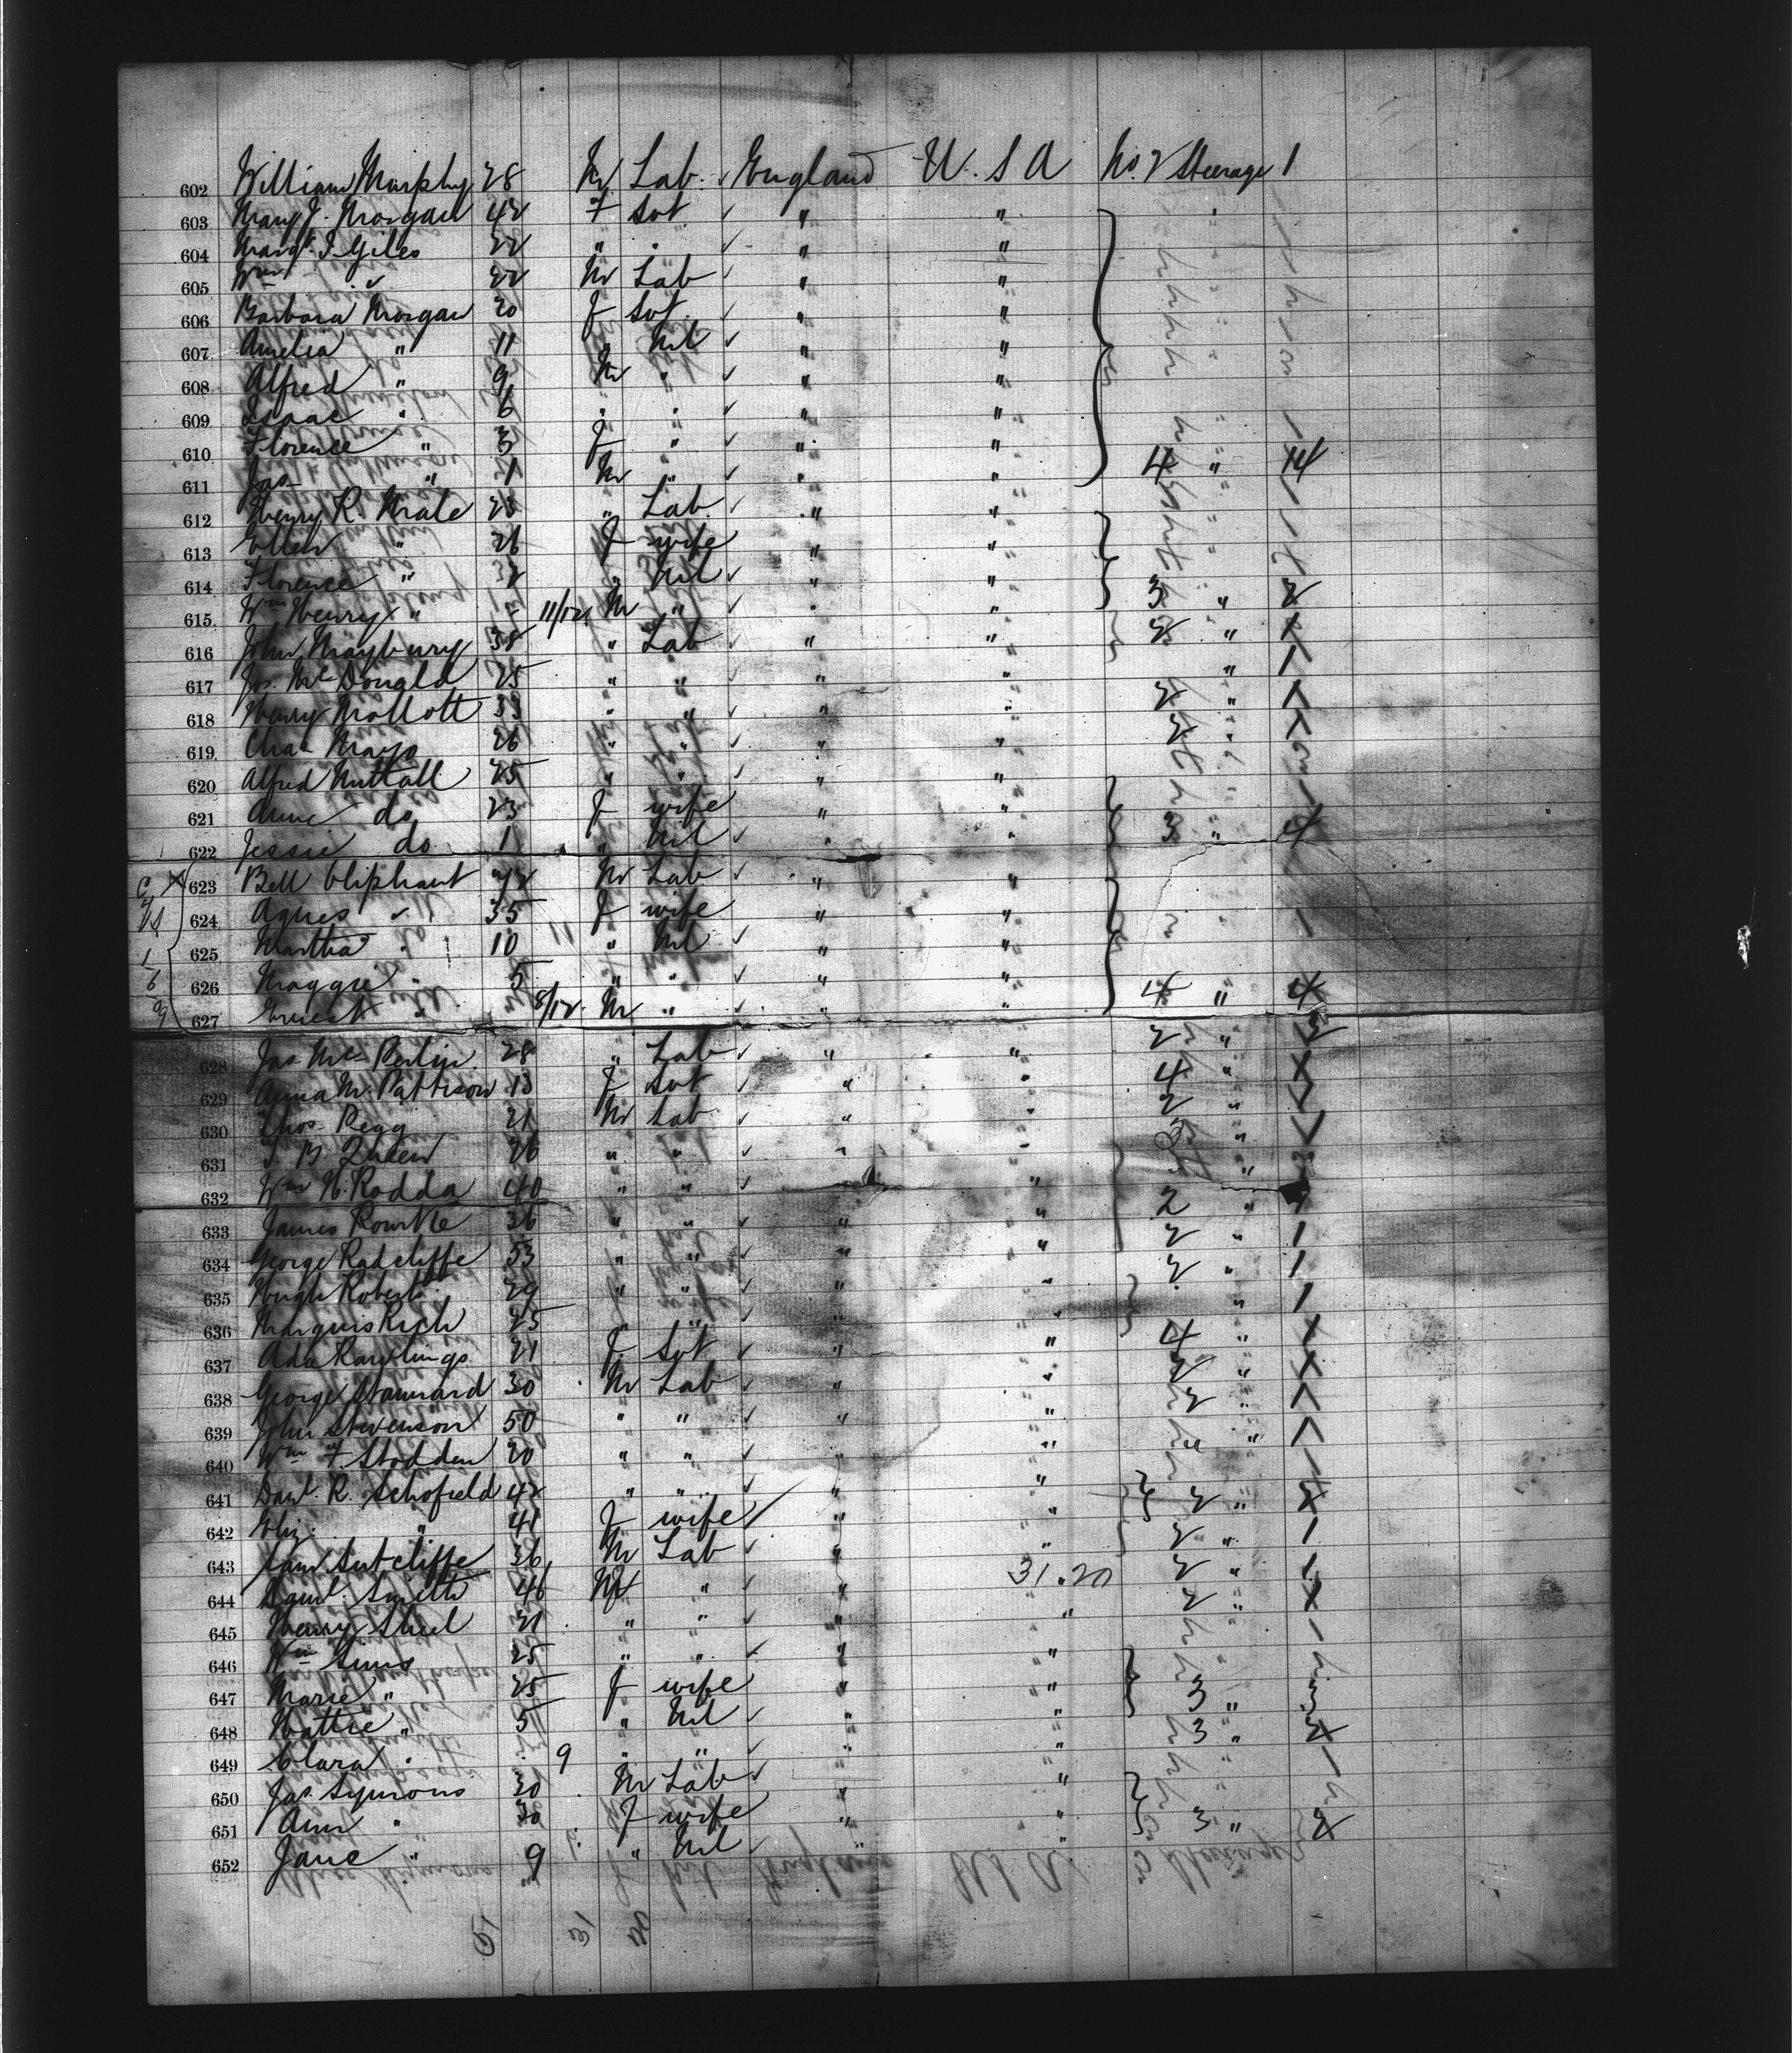 602 William Murphy 28 M Lab. ✓ England U. S A No. 2 Steerage 1
603 Mary J. Morgan 42 F Svt ✓ " "
604 Margt. J Giles 22 " " ✓ " "
605 Wm " 22 M Lab ✓ " "
606 Barbara Morgan 20 F Svt. ✓ " "
607 Amelia " 11 " Nil ✓ " "
608 Alfred " 9 M " ✓ " "
609 Isaac " 6 " " ✓ " "
610 Florence " 3 F " ✓ " "
611 Jas " 1 M " ✓ " " 4 " 14
612 Henry R. Male 23 " Lab. ✓ " "
613 Ellen " 26 F wife " "
614 Florence " " Nil ✓ " "
615 Wm Henry " 11/12 M " ✓ " " 3 " 2
616 John Maybury 38 " Lab ✓ " " 2 " 1
617 Jos. McDonald 25 " " ✓ " " " 1
618 Henry Mallott 33 " " ✓ " " 2 " 1
619 Chas Mays 26 " " ✓ " " 2 "
620 Alfred Nuttall 25 " " ✓ " "
621 Anne do 23 F wife " "
622 Jessie do 1 " Nil ✓ " " 3 " 4
623 Bell Oliphant M Lab ✓ " "
624 Agnes " 35 F wife " "
625 Martha " 10 " Nil ✓ " "
626 Maggie " 5 " " ✓ " "
627 Ernest " 8/12 M " ✓ " " 4 " 4
628 Jas. Mc 28 " Lab ✓ " " 2 "
629 Anna M. Pattison 13 F Svt ✓ " " 4 "
630 Thos. Pegg 21 M Lab ✓ " " 2 "
631 J. B. Queen 26 " " ✓ " "
632 Wm H. Rodda 40 " " ✓ "
633 James Rourke 36 " " ✓ " " 2 "
634 George Radcliffe 53 " " ✓ " " 2 " 1
635 Hugh Robert 29 " " ✓ " " 2 " 1
636 Marquis Rich 25 " " ✓ " " " 1
637 Ada Rawlings 21 F Svt ✓ " " 4 " 1
638 George Stannard 30 M Lab ✓ " " 2 "
639 John Stevenson 50 " " ✓ " " 2 "
640 Wm F Stodden 20 " " ✓ " " " "
641 Danl. R. Schofield 42 " " ✓ " "
642 Eliz. " 41 F wife ✓ " " 2 " 2
643 Sam Sutcliffe 36 M Lab ✓ " " 2 " 1
644 Saml. Smith 46 M " ✓ " 31.20 2 " 1
645 Henry Steel 21 " " ✓ " " 2 " 1
646 Wm Sims 25 " " ✓ " "
647 Marie " 25 F wife " "
648 Hattie " 5 " Nil ✓ " " 3 " 3
649 Clara " 9 " " ✓ " " 3 " 2
650 Jas. Symons 30 M Lab ✓ " "
651 Ann " 30 F wife " "
652 Jane " 9 " Nil ✓ " " 3 " 2